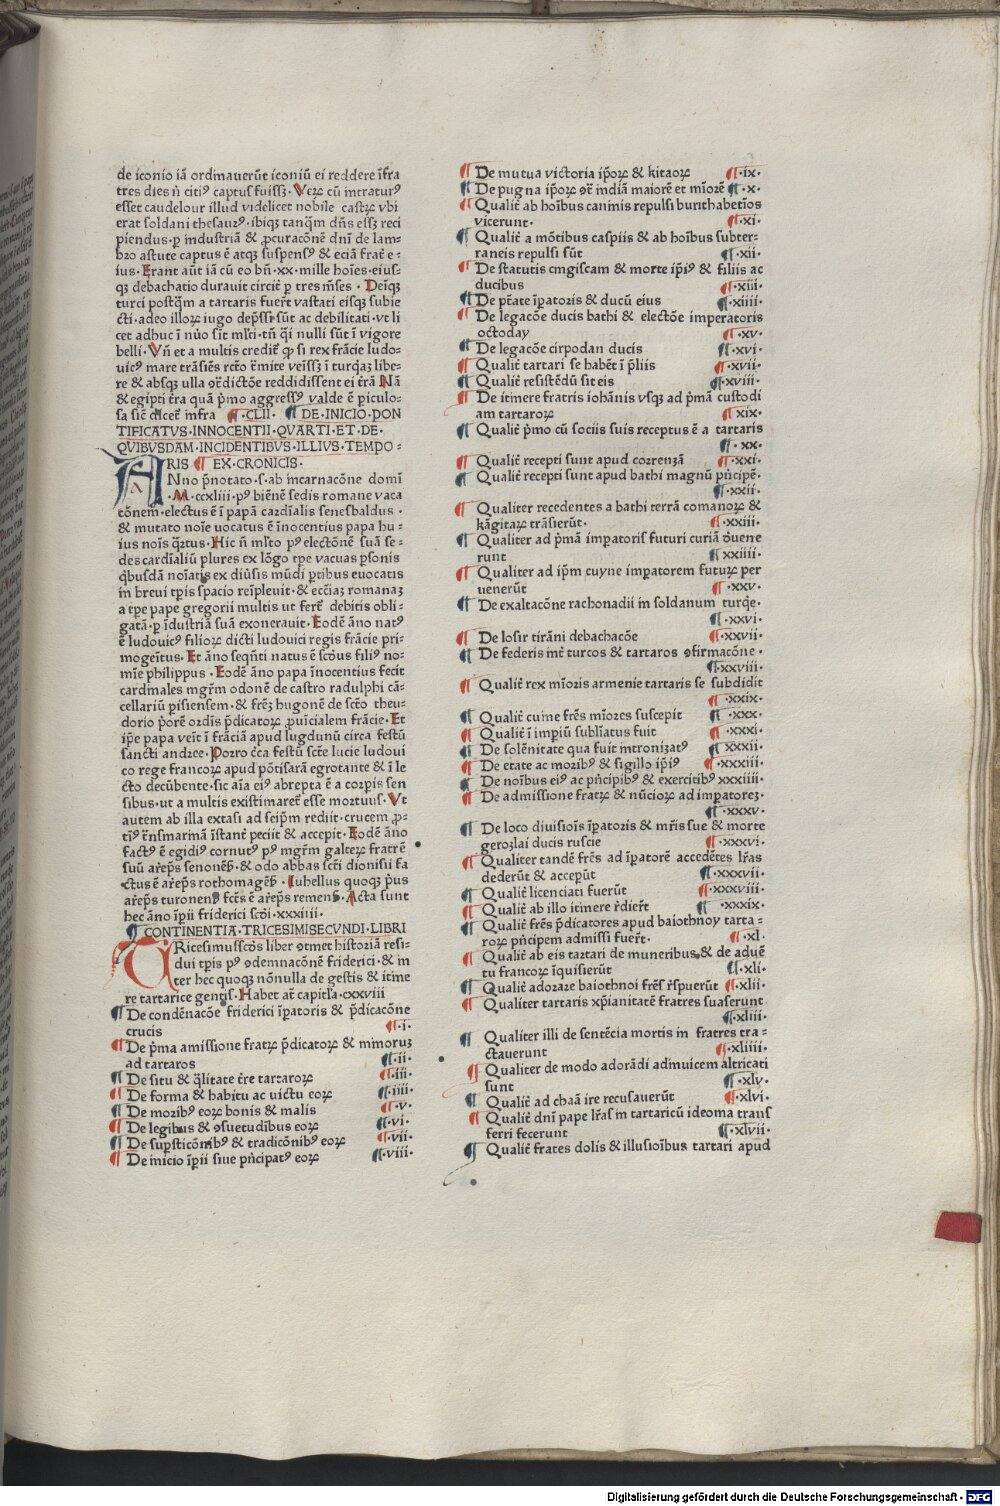 de iconio iā ordinauerūt iconiū ei reddere īfra
tres dies n̄ citiꝰ captus fuiss₃· Veꝝ cū intraturꝰ
esset caudelour illud videlicet nobile castꝝ vbi
erat soldani thesaurꝰ· ibiqȝ tanqm̄ dn̄s ess₃ reci
piendus· ꝑ industriā & ꝓcuracōne dnī de lam-
bro astute captus ē atqȝ suspensꝰ & eciā frat̄ e-
ius· Erant aūt iā cū eo bn̄· xx· mille hoīes· eius-
qȝ debachatio durauit circit̄ ꝑ tres mēses· Deīqȝ
turci postqm̄ a tartaris fuer̄t vastati eisqȝ subie
cti· adeo illoꝝ iugo dep̄ssi sūt ac debilitati· vt li
cet adhuc ī nūo sīt ml̄ti· tn̄ q̄i nulli sūt ī vigore
belli· Vn̄ et a multis credit̄ ꝙ si rex frācie ludo-
uicꝰ mare trāsiēs rc̄to t̄mite veīss₃ ī turq̄az libe-
re & absqȝ ulla ꝯt̄dictōe reddidissent ei t̄rā Nā
& egipti t̄ra quā p̄mo aggressꝰ valde ē piculo-
sa sic̄ dicet̄ infra ¶·CLII· ¶ DE·INICIO·PON
TIFICATVS·INNOCENTII·QVARTI·ET·DE·
QVIBVSDAM·INCIDENTIBVS·ILLIVS·TEMPO-
RIS ¶ EX·CRONICIS·
ANno p̄notato·s·ab incarnacōne domī
·M·ccxliii·pꝰ biēnē sedis romane vaca
tōnem·electus ē ī papā cardīalis senesbaldus·
& mutato noīe uocatus ē īnocentius papa hu-
ius noīs q̄rtus· Hic n̄ ml̄to pꝰ electōnē suā se-
des cardīaliū plures ex lōgo tpe vacuas ꝑsonis
q̄busdā noīatis ex diūsis mūdi ꝑtibus euocatis
in breui tp̄is spacio reīpleuit· & ecc̄ias romanas
a tpe pape gregorii multis ut fert̄ debitis obli-
gatā· ꝑ īdustriā suā exonerauit· Eodē āno natꝰ
ē ludouicꝰ filioꝝ dicti ludouici regis frācie pri-
mogeītus· Et āno seqn̄ti natus ē scdus filiꝰ no-
mīe philippus· Eodē āno papa īnocentius fecit
cardinales mgr̄m odonē de castro radulphi cā-
cellariū pisiensem· & fr̄ez hugonē de sct̄o theu-
dorio p̄orē ordīs p̄dicatoꝝ ꝓuīcialem frācie· Et
ip̄e papa veīt ī frāciā apud lugdunū circa festū
sancti andree· Porro c̄ca festū sct̄e lucie ludoui
co rege francoꝝ apud pōtisarā egrotante & ī le
cto decūbente· sic aīa eiꝰ abrepta ē a corꝑis sen
sibus· ut a multis existimaret̄ esse mortuus· Vt
autem ab illa extasi ad seipm̄ rediit· crucem ꝓ-
tīꝰ t̄nsmarinā īstant̄ peciit & accepit· Eodē āno
factꝰ ē egidiꝰ cornutꝰ pꝰ mgr̄m galteꝝ fratrē
suū ar̄eps senonēs̄· & odo abbas sct̄i dionisii fa
ctus ē ar̄eps rothomagēs̄· Iubellus quoqȝ p̄us
ar̄eps turonens̄ fct̄s ē ar̄eps remens̄· Acta sunt
hec āno īp̄ii friderici scd̄i·xxxiiii·
¶ CONTINENTIA·TRICESIMISECVNDI·LIBRI
TRicesimusscd̄s liber ꝯtinet historiā resi-
dui tp̄is pꝰ ꝯdemnacōnē friderici· & in
ter hec quoqȝ nōnulla de gestis & itine
re tartarice gentis· Habet at̄ capitl̄a·cxxviii
¶ De condēnacōe friderici īpatoris & p̄dicacōne
crucis ¶·i·
¶ De p̄ma amissione fratꝝ p̄dicatoꝝ & minoruȝ
ad tartaros ¶·ii·
¶ De situ & q̄litate t̄re tartaroꝝ ¶·iii·
¶ De forma & habitu ac uictu eoꝝ ¶·iiii·
¶ De moribꝰ eoꝝ bonis & malis ¶·v·
¶ De legibus & ꝯsuetudibus eoꝝ ¶·vi·
¶ De suꝑsticōnibꝰ & tradicōnibꝰ eoꝝ ¶·vii·
¶ De inicio īp̄ii siue pn̄cipatꝰ eoꝝ ¶·viii·
¶ De mutua victoria ip̄oꝝ & kitaoꝝ ¶·ix·
¶ De pugna ip̄oꝝ ꝯt̄ indiā maiorē et mīorē ¶·x·
¶ Qualit̄ ab hoībus caninis repulsi burithabetīos
vicerunt· ¶·xi·
¶ Qualit̄ a mōtibus caspiis & ab hoībus subter-
raneis repulsi sūt ¶·xii·
¶ De statutis cingiscam & morte ip̄iꝰ & filiis ac
ducibus ¶·xiii·
¶ De pt̄ate īpatoris & ducū eius ¶·xiiii·
¶ De legacōe ducis bathi & electōe imperatoris
octoday ¶·xv·
¶ De legacōe cirpodan ducis ¶·xvi·
¶ Qualit̄ tartari se habēt ī p̄liis ¶·xvii·
¶ Qualit̄ resistēdū sit eis ¶·xviii·
¶ De itinere fratris iohānis vsqȝ ad p̄mā custodi
am tartaroꝝ ¶ xix·
¶ Qualit̄ p̄mo cū sociis suis receptus ē a tartaris
¶·xx·
¶ Qualit̄ recepti sunt apud correnzā ¶·xxi·
¶ Qualit̄ recepti sunt apud bathi magnū pn̄cipē·
¶·xxii·
¶ Qualiter recedentes a bathi terrā comanoꝝ &
kāgitaꝝ trāsierūt· ¶·xxiii·
¶ Qualiter ad p̄mā imꝑatoris futuri curiā ꝺuene
runt ¶ xxiiii·
¶ Qualiter ad ip̄m cuyne imꝑatorem futuꝝ per
uenerūt ¶·xxv·
¶ De exaltacōne rachonadii in soldanum turq̄e·
¶·xxvi·
¶ De losir tirāni debachacōe ¶·xxvii·
¶ De federis int̄ turcos & tartaros ꝯfirmacōne·
¶·xxviii·
¶ Qualit̄ rex mīoris armenie tartaris se subdidit
¶·xxix·
¶ Qualit̄ cuine fr̄es mīores suscepit ¶·xxx·
¶ Qualit̄ ī imꝑiū sublīatus fuit ¶·xxxi·
¶ De solēnitate qua fuit intronizatꝰ ¶ xxxii·
¶ De etate ac moribꝰ & sigillo ip̄iꝰ ¶·xxxiii·
¶ De noībus eiꝰ ac pn̄cipibꝰ & exercitibꝰ xxxiiii·
¶ De admissione fratꝝ & nūcioꝝ ad imꝑatoreȝ·
¶·xxxv·
¶ De loco diuisiois īpatoris & mr̄is sue & morte
geroslai ducis ruscie ¶·xxxvi·
¶ Qualiter tandē fr̄es ad īpatorē accedētes lr̄as
dederūt & accepūt ¶·xxxvii·
¶ Qualit̄ licenciati fuerūt ¶·xxxviii·
¶ Qualit̄ ab illo itinere r̄dier̄t ¶·xxxix·
¶ Qualit̄ fr̄es p̄dicatores apud baiothnoy tarta-
roꝝ pn̄cipem admissi fuer̄t· ¶·xl·
¶ Qualit̄ ab eis tartari de muneribus & de aduē
tu francoꝝ īquisierūt ¶·xli·
¶ Qualit̄ adorare baiothnoi fr̄es r̄spuerūt ¶·xlii·
¶ Qualiter tartaris xp̄ianitatē fratres suaserunt
¶·xliii·
¶ Qualiter illi de sentēcia mortis in fratres tra-
ctauerunt ¶·xliiii·
¶ Qualiter de modo adorādi adinuicem altricati
sunt ¶·xlv·
¶ Qualit̄ ad chaā ire recusauerūt ¶·xlvi·
¶ Qualit̄ dnī pape lr̄as in tartaricū ideoma trans
ferri fecerunt ¶·xlvii·
¶ Qualit̄ frates dolis & illusioībus tartari apud
Digitalisierung gefördert durch die Deutsche Forschungsgemeinschaft - DFG